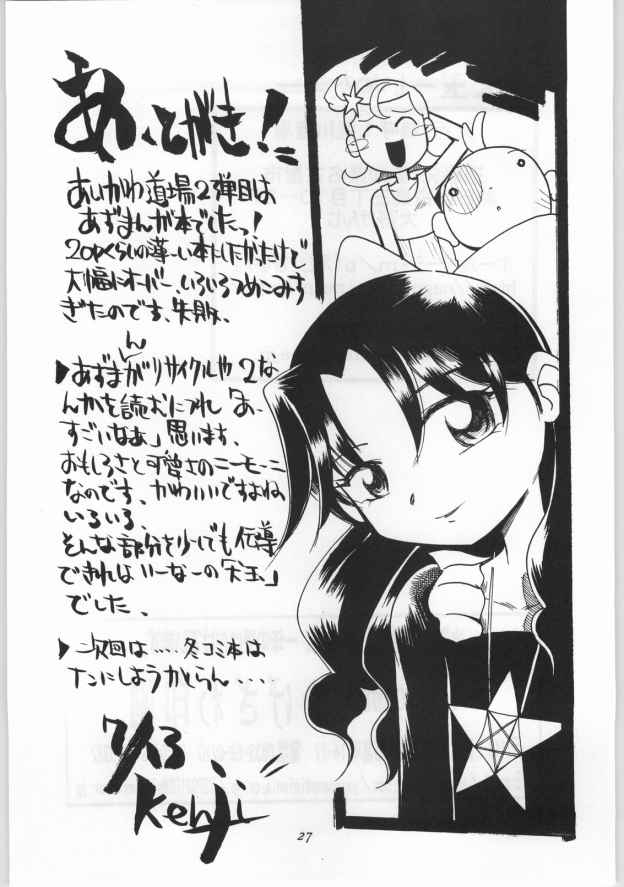 あ、とがき!
あしかわ道場2弾目は
あずまんが本でしたっ!
20Pくらいの薄ーい本にしたかったけど
大幅にオーバー、いろいろつめこみす
ぎたのです、失敗、
▶あずまんがリサイクルや2な
んかを読むにつれ「あ、
すごいなあ」思います、
おもしろさと可愛さのニーモーニ
なのです、かわいいですよね
いろいろ、
そんな部分を少しでも伝導
できればいーなーの「天王」
でした、
▶次回は‥‥冬コミ本は
ナンにしようかとらん‥‥
7/13
Kenji
27